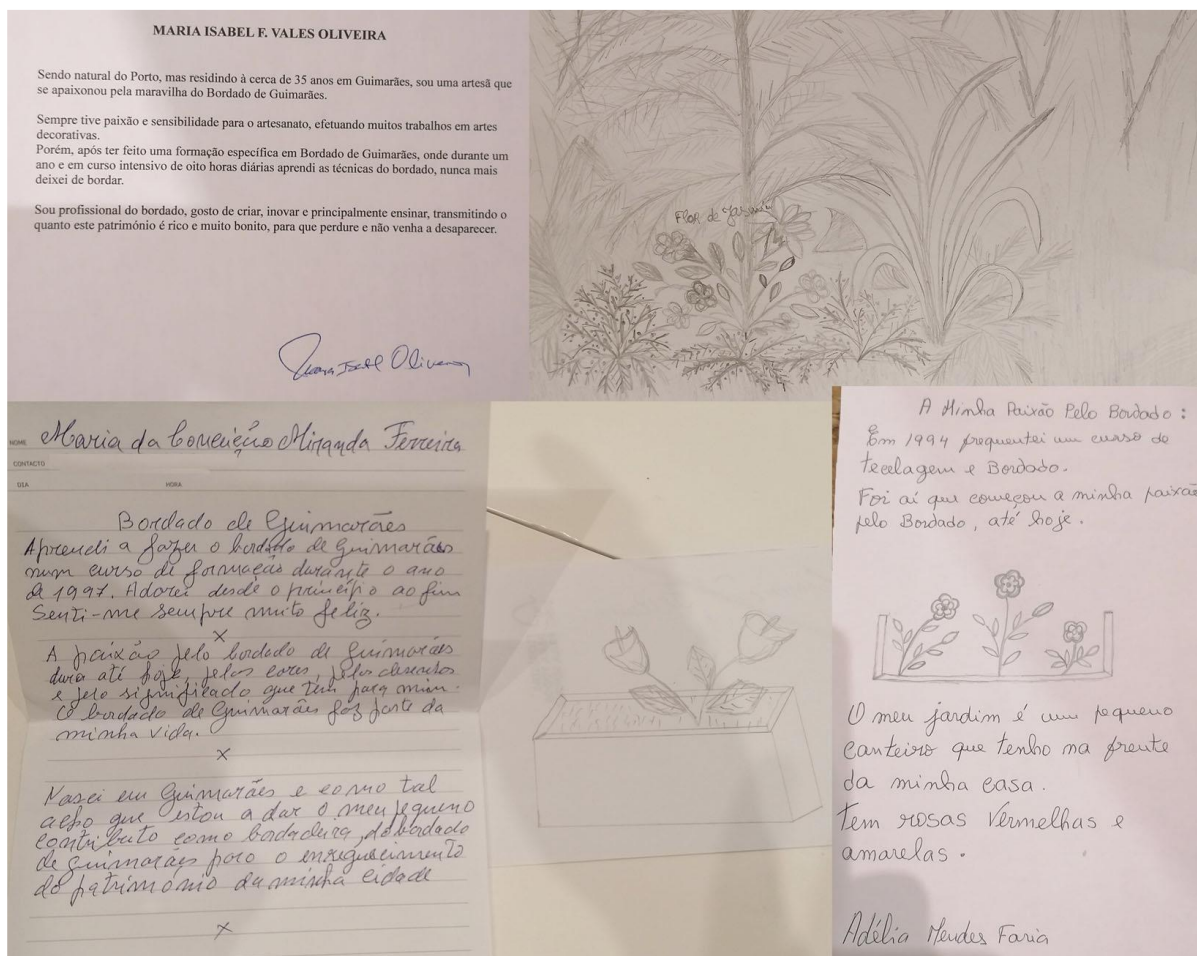 MARIA ISABEL F. VALES OLIVEIRA
Sendo natural do Porto, mas residindo à cerca de 35 anos em Guimarães, sou uma artesã que
se apaixonou pela maravilha do Bordado de Guimarães.
Sempre tive paixão e sensibilidade para o artesanato, efetuando muitos trabalhos em artes
decorativas.
Porém, após ter feito uma formação específica em Bordado de Guimarães, onde durante um
ano e em curso intensivo de oito horas diárias aprendi as técnicas do bordado, nunca mais
deixei de bordar.
Sou profissional do bordado, gosto de criar, inovar e principalmente ensinar, transmitindo o
quanto este património é rico e muito bonito, para que perdure e não venha a desaparecer.
Maria Isabel Oliveira
Flor de Jasmim
NOME Maria da Conceição Miranda Ferreira
CONTACTO
DIA HORA
Bordado de Guimarães
Aprendi a fazer o bordado de Guimarães
num curso de formação durante o ano
de 1997. Adorei desde o princípio ao fim
Senti-me sempre muito feliz.
X
A paixão pelo bordado de Guimarães
dura até hoje, pelas cores, pelos desenhos
e pelo significado que tem para mim.
O bordado de Guimarães faz parte da
minha vida.
X
Nasci em Guimarães e como tal
acho que estou a dar o meu pequeno
contributo como bordadeira, do bordado
de Guimarães para o enriquecimento
do património da minha cidade
X
A Minha Paixão Pelo Bordado :
Em 1994 frequentei um curso de
tecelagem e Bordado.
Foi aí que começou a minha paixão
pelo Bordado, até hoje.
O meu jardim é um pequeno
canteiro que tenho na frente
da minha casa.
Tem rosas Vermelhas e
amarelas.
Adélia Mendes Faria